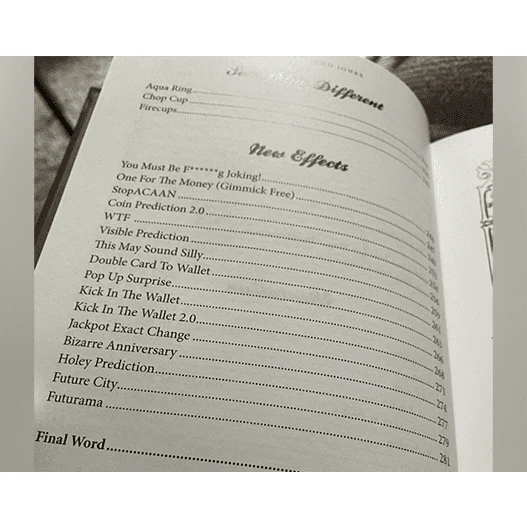 JONES
Different
Aqua Ring
Chop Cup
Firecups
New Effects
You Must Be F******g Joking!
One For The Money (Gimmick Free)
StopACAAN
Coin Prediction 2.0
WTF
Visible Prediction
This May Sound Silly
Double Card To Wallet
Pop Up Surprise
Kick In The Wallet
Kick In The Wallet 2.0
Jackpot Exact Change
Bizarre Anniversary
Holey Prediction
Future City
Futurama
Final Word
261
263
266
268
271
274
277
279
281